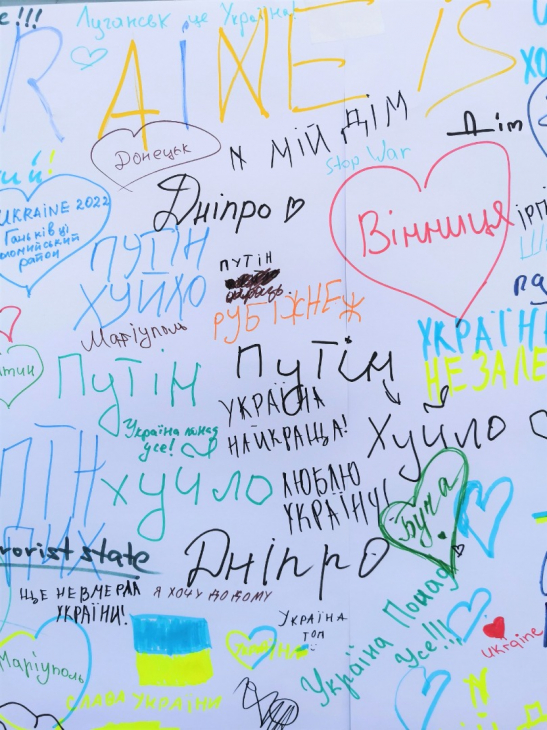 е!!!
Луганськ це Україна!
RAINE IS
Донецьк
МІЙ ДІМ
Дім
Stop War
UKRAINE 2022
район
Дніпро
Вінниця
ПУТІН
ХУЙЛО
ПУТІН
Маріуполь
РУБІЖНЕ Ж
УКРАЇНА
НЕЗАЛЕ
Путін
Хуйло
Путін
хуйло
УКРАЇНА
НАЙКРАЩА!
Україна понад
усе!
ЛЮБЛЮ
УКРАЇНУ
Буча
rorist state
Дніпро
ЩЕ НЕ ВМЕРЛА
УКРАЇНИ!
Я ХОЧУ ДОДОМУ
УКРАЇНА
ТОП
Україна Понад
усе!!!
Ukraine
Маріуполь
СЛАВА УКРАЇНИ